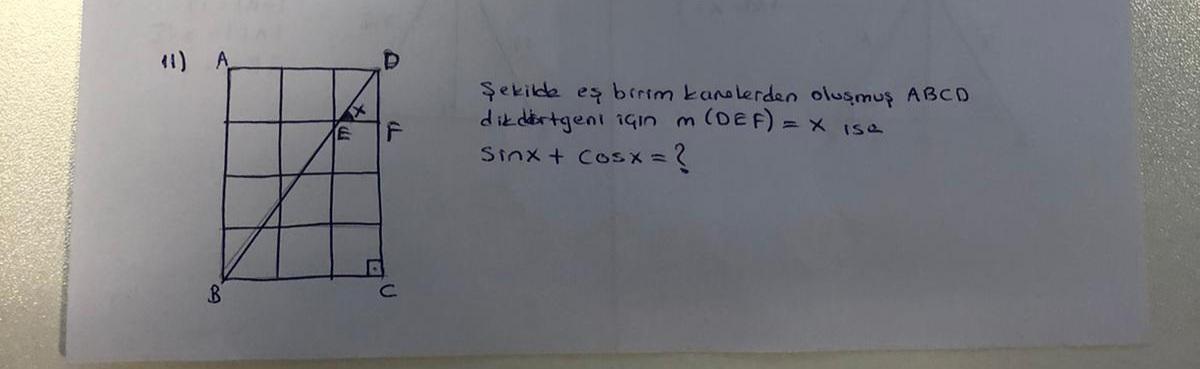 11) A D
x
E F
B C
Şekilde eş birim karelerden oluşmuş ABCD
dikdörtgeni için m (DEF) = x ise
Sinx + Cosx = ?